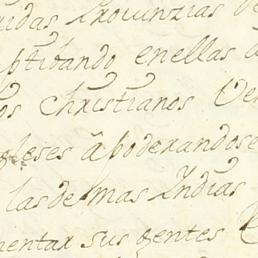 uidas Provinzias de
ptibando enellas a
os christianos Ve
gleses â poderandose
las demas Yndias
mentar sus gentes